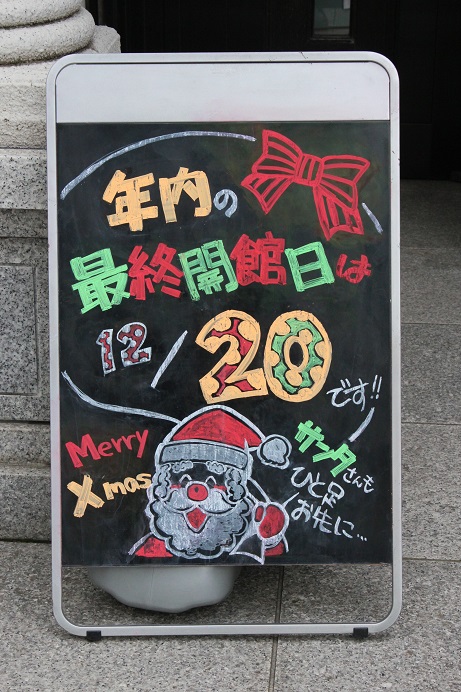 年内の
最終開館日は
12/20
です!!
Merry
Xmas
サンタさんも
ひと足
お先に…